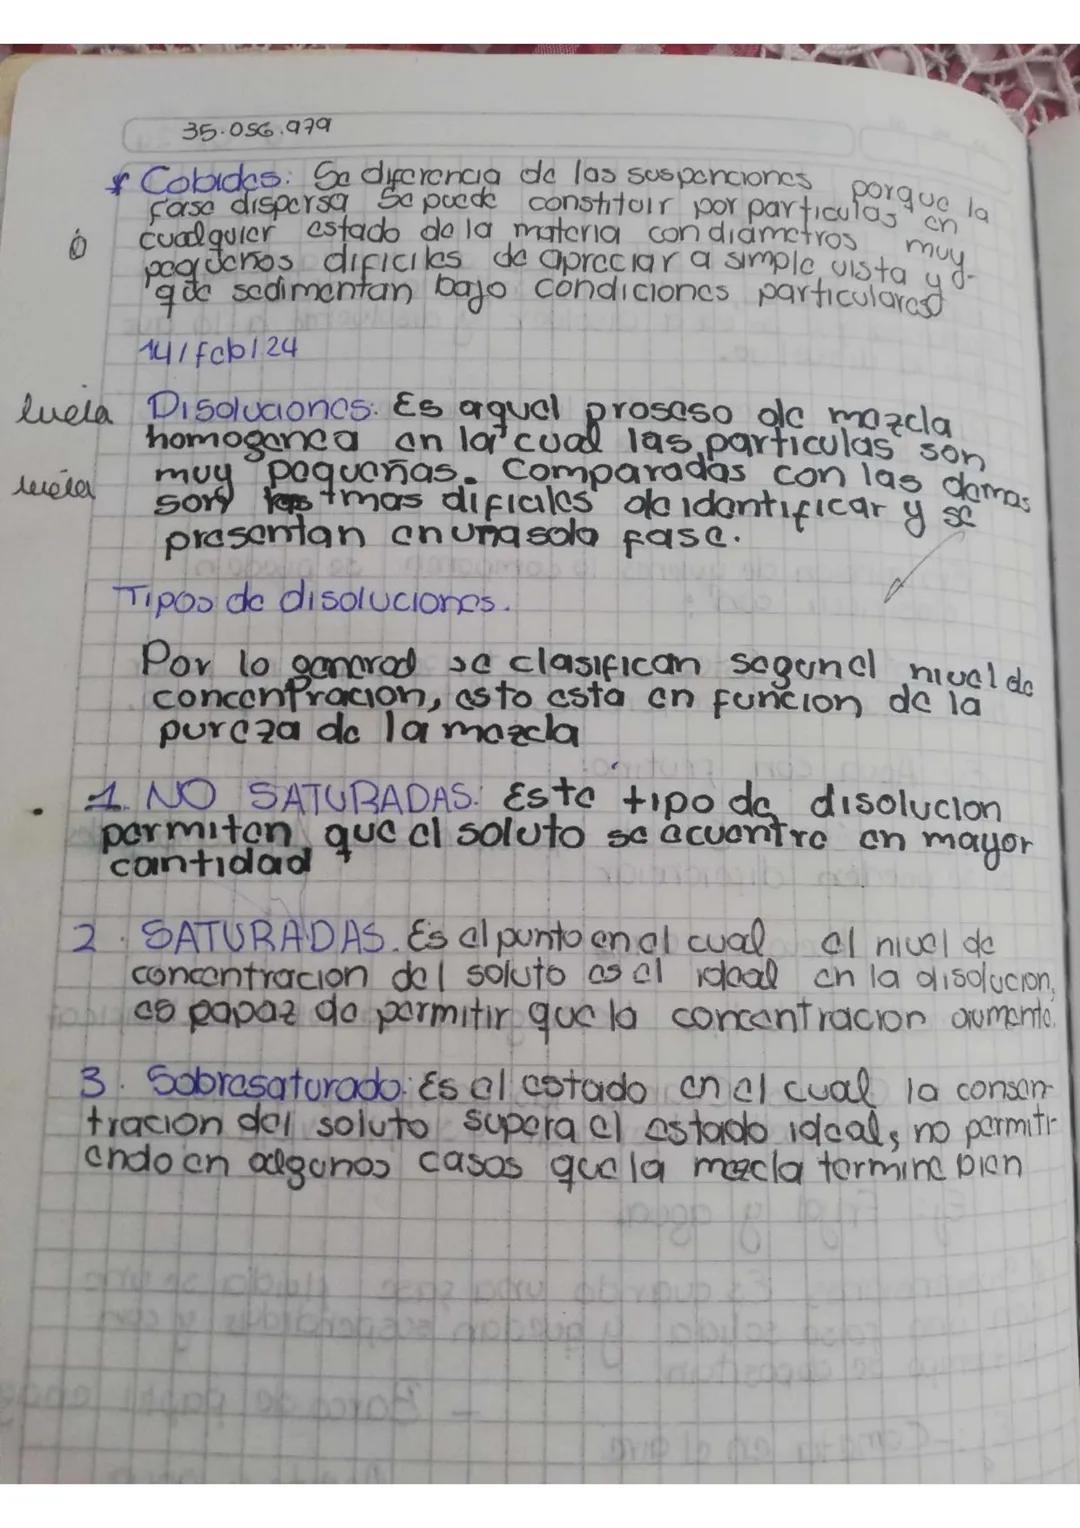 35.056.979
* Cobides: Se diferencia de las suspenciones porque la
fase dispersa se puede constituir por particulas en
cualquier estado de la materia con diametros muy
pequenos dificiles de apreciar a simple vista y
que sedimentan bajo condiciones particulares
14/feb/24
lucia Disoluciones: Es aquel prosaso de mezcla
homogenea en la cual las particulas son
lucia muy pequeñas. Comparadas con las demas
son mas dificiles de identificar y se
presentan en una sola fase.
Tipos de disoluciones.
Por lo general se clasifican segun el nivel de
concentracion, esto esta en funcion de la
pureza de la mezcla
1. NO SATURADAS: Este tipo de disolucion
permiten que el soluto se ecuentre en mayor
cantidad
2. SATURADAS. Es el punto en el cual el nivel de
concentracion del soluto es el ideal en la disolucion,
es papaz de permitir que la concentracion aumente.
3. Sobresaturado: Es el estado en el cual la consen-
tracion del soluto supera el estado ideal, no permiti-
endo en algunos casos que la mezcla termine bien